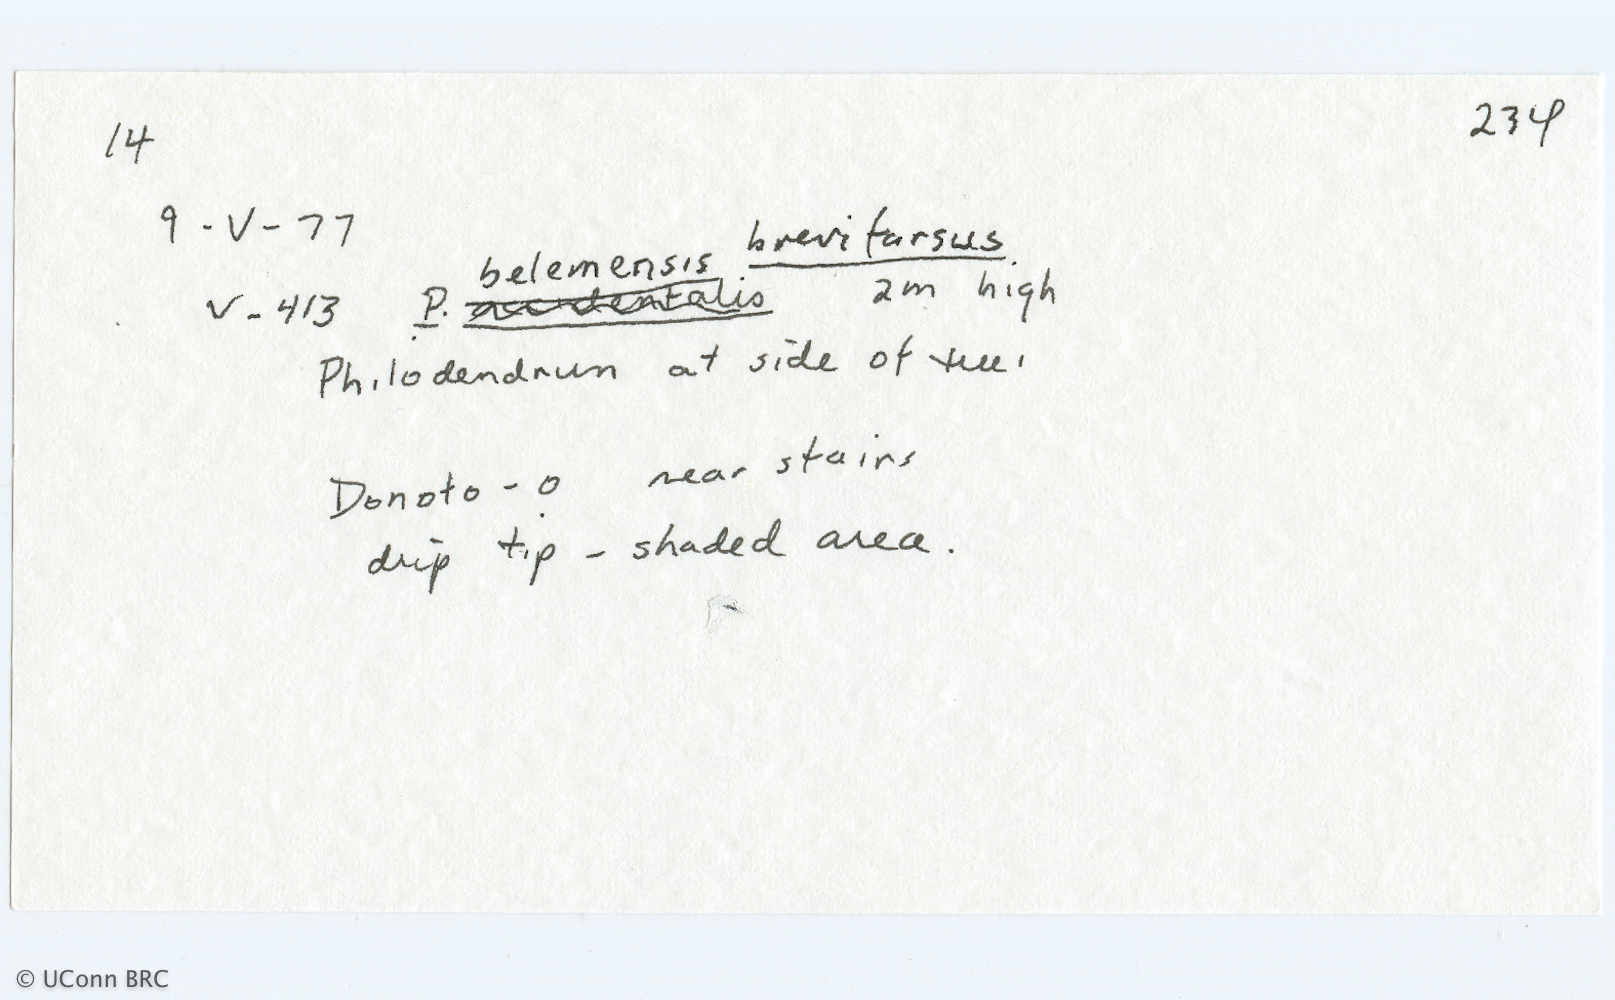 14
234
9-V-77
V-413 P. belemensis brevitarsus
occidentalis 2m high
Philodendrun at side of tree.
Donoto-o near stairs
drip tip - shaded area.
© UConn BRC